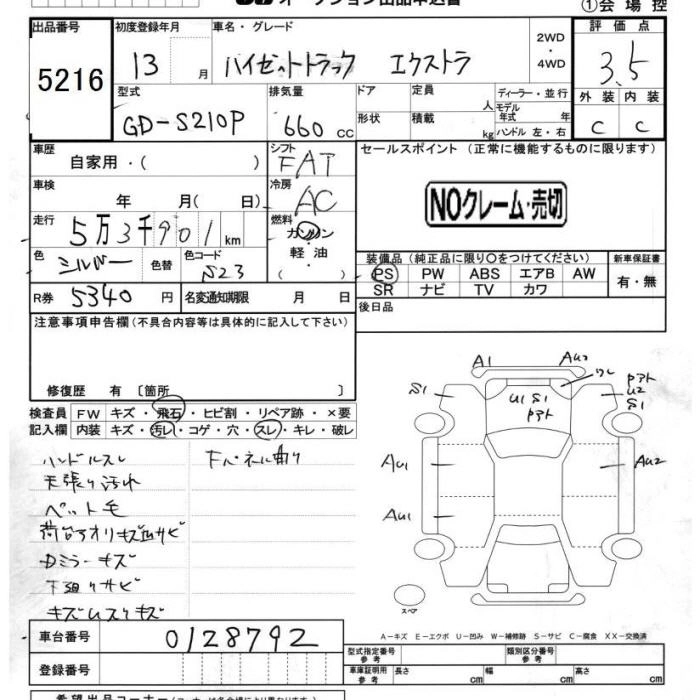 オークション出品申込書
①会場控
出品番号 5216
初度登録年月 13 月
車名・グレード ハイゼットトラック エクストラ
2WD・4WD
評価点 3.5
型式 GD-S210P
排気量 660 cc
ドア
形状
定員 人
積載 kg
ディーラー・並行
モデル年式 年
ハンドル 左・右
外装 C
内装 C
車歴 自家用・( )
シフト FAT
セールスポイント (正常に機能するものに限ります)
車検 年 月( 日)
冷房 AC
NOクレーム・売切
走行 5万3千901 km
燃料 ガソリン
軽油
( )
色 シルバー
色替
色コード S23
装備品(純正品に限り〇をつけてください)
新車保証書
PS PW ABS エアB AW
SR ナビ TV カワ
有・無
R券 5340 円
名変通知期限 月 日
後日品
注意事項申告欄(不具合内容等は具体的に記入して下さい)
修復歴 有 〔箇所 〕
検査員記入欄
FW キズ・飛石・ヒビ割・リペア跡・×要
内装 キズ・汚レ・コゲ・穴・スレ・キレ・破レ
ハンドルスレ
天張り汚れ
ペット毛
荷台アオリキズ凹サビ
Dミラーキズ
下廻りサビ
Fパネル曲り
A1
AU2
S1
U1 S1
Pアト
Pアト
U2
S1
AU1
AU2
AU1
スペア
A-キズ E-エクボ U-凹み W-補修跡 S-サビ C-腐食 XX-交換済
車台番号 0128792
登録番号
型式指定番号 参考
類別区分番号 参考
車庫証明用 参考
長さ cm
幅 cm
高さ cm
希望出品コーナー